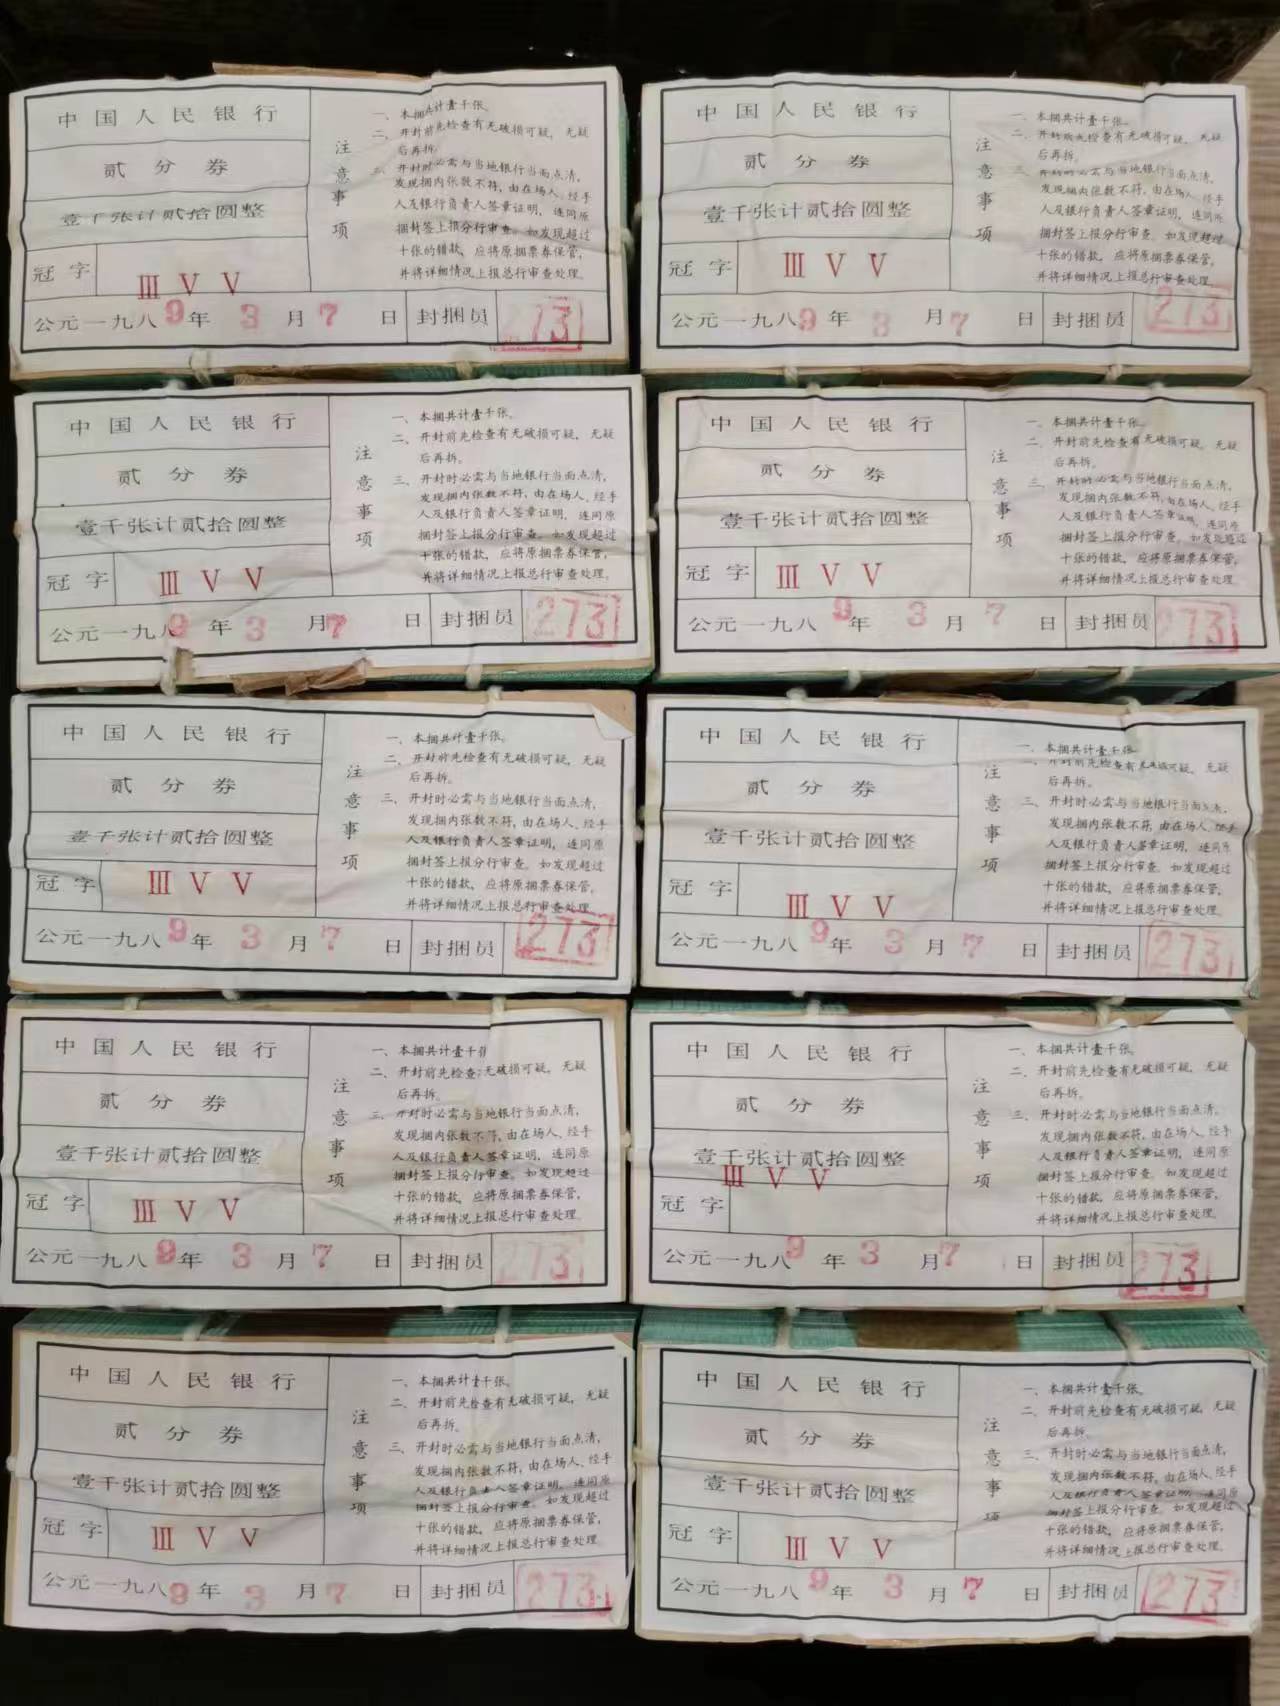 中国人民银行
贰分券
壹千张计贰拾圆整
冠字 Ⅲ Ⅴ Ⅴ
公元一九八9年3月7日 封捆员 273
注意事项
一、本捆共计壹千张。
二、开封前先检查有无破损可疑，无疑
后再拆。
三、开封时必需与当地银行当面点清，
发现捆内张数不符，由在场人、经手
人及银行负责人签章证明，连同原
捆封签上报分行审查。如发现超过
十张的错款，应将原捆票券保管，
并将详细情况上报总行审查处理。
中国人民银行
贰分券
壹千张计贰拾圆整
冠字 Ⅲ Ⅴ Ⅴ
公元一九八9年3月7日 封捆员 273
注意事项
一、本捆共计壹千张。
二、开封前先检查有无破损可疑，无疑
后再拆。
三、开封时必需与当地银行当面点清，
发现捆内张数不符，由在场人、经手
人及银行负责人签章证明，连同原
捆封签上报分行审查。如发现超过
十张的错款，应将原捆票券保管，
并将详细情况上报总行审查处理。
中国人民银行
贰分券
壹千张计贰拾圆整
冠字 Ⅲ Ⅴ Ⅴ
公元一九八9年3月7日 封捆员 273
注意事项
一、本捆共计壹千张。
二、开封前先检查有无破损可疑，无疑
后再拆。
三、开封时必需与当地银行当面点清，
发现捆内张数不符，由在场人、经手
人及银行负责人签章证明，连同原
捆封签上报分行审查。如发现超过
十张的错款，应将原捆票券保管，
并将详细情况上报总行审查处理。
中国人民银行
贰分券
壹千张计贰拾圆整
冠字 Ⅲ Ⅴ Ⅴ
公元一九八9年3月7日 封捆员 273
注意事项
一、本捆共计壹千张。
二、开封前先检查有无破损可疑，无疑
后再拆。
三、开封时必需与当地银行当面点清，
发现捆内张数不符，由在场人、经手
人及银行负责人签章证明，连同原
捆封签上报分行审查。如发现超过
十张的错款，应将原捆票券保管，
并将详细情况上报总行审查处理。
中国人民银行
贰分券
壹千张计贰拾圆整
冠字 Ⅲ Ⅴ Ⅴ
公元一九八9年3月7日 封捆员 273
注意事项
一、本捆共计壹千张。
二、开封前先检查有无破损可疑，无疑
后再拆。
三、开封时必需与当地银行当面点清，
发现捆内张数不符，由在场人、经手
人及银行负责人签章证明，连同原
捆封签上报分行审查。如发现超过
十张的错款，应将原捆票券保管，
并将详细情况上报总行审查处理。
中国人民银行
贰分券
壹千张计贰拾圆整
冠字 Ⅲ Ⅴ Ⅴ
公元一九八9年3月7日 封捆员 273
注意事项
一、本捆共计壹千张。
二、开封前先检查有无破损可疑，无疑
后再拆。
三、开封时必需与当地银行当面点清，
发现捆内张数不符，由在场人、经手
人及银行负责人签章证明，连同原
捆封签上报分行审查。如发现超过
十张的错款，应将原捆票券保管，
并将详细情况上报总行审查处理。
中国人民银行
贰分券
壹千张计贰拾圆整
冠字 Ⅲ Ⅴ Ⅴ
公元一九八9年3月7日 封捆员 273
注意事项
一、本捆共计壹千张
二、开封前先检查无破损可疑，无疑
后再拆。
三、开封时必需与当地银行当面点清，
发现捆内张数不符，由在场人、经手
人及银行负责人签章证明，连同原
捆封签上报分行审查。如发现超过
十张的错款，应将原捆票券保管，
并将详细情况上报总行审查处理。
中国人民银行
贰分券
壹千张计贰拾圆整
Ⅲ Ⅴ Ⅴ
冠字
公元一九八9年3月7日 封捆员 273
注意事项
一、本捆共计壹千张。
二、开封前先检查有无破损可疑，无疑
后再拆。
三、开封时必需与当地银行当面点清，
发现捆内张数不符，由在场人、经手
人及银行负责人签章证明，连同原
捆封签上报分行审查。如发现超过
十张的错款，应将原捆票券保管，
并将详细情况上报总行审查处理。
中国人民银行
贰分券
壹千张计贰拾圆整
冠字 Ⅲ Ⅴ Ⅴ
公元一九八9年3月7日 封捆员 273
注意事项
一、本捆共计壹千张。
二、开封前先检查有无破损可疑，无疑
后再拆。
三、开封时必需与当地银行当面点清，
发现捆内张数不符，由在场人、经手
人及银行负责人签章证明，连同原
捆封签上报分行审查。如发现超过
十张的错款，应将原捆票券保管，
并将详细情况上报总行审查处理。
中国人民银行
贰分券
壹千张计贰拾圆整
冠字 Ⅲ Ⅴ Ⅴ
公元一九八9年3月7日 封捆员 273
注意事项
一、本捆共计壹千张。
二、开封前先检查有无破损可疑，无疑
后再拆。
三、开封时必需与当地银行当面点清，
发现捆内张数不符，由在场人、经手
人及银行负责人签章证明，连同原
捆封签上报分行审查。如发现超过
十张的错款，应将原捆票券保管，
并将详细情况上报总行审查处理。